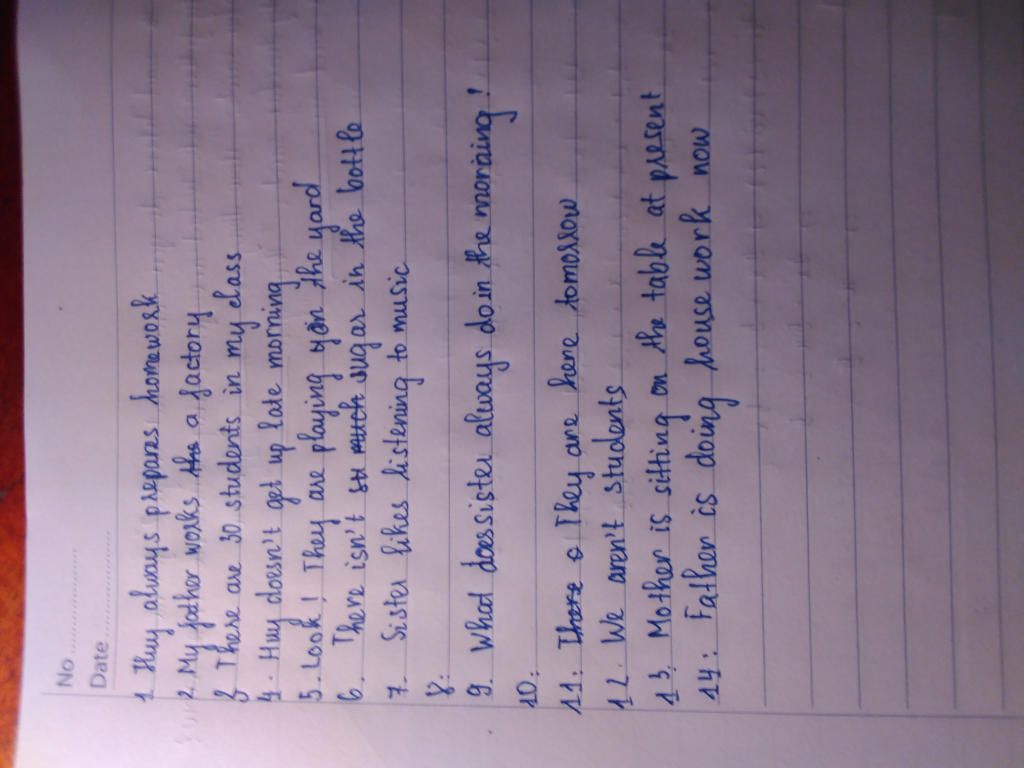 No ....................
Date ....................
1. Huy always prepars homework
2. My father works the a factory
3 There are 30 students in my class
4. Huy doesn't get up late morning
5. Look! They are playing in the yard
6. There isn't sugar in the bottle
7. Sister likes listening to music
8.
9. What doessister always do in the morning!
10.
11. There They are here tomorrow
12. We aren't students
13. Mother is sitting on the table at present
14: Father is doing housework now